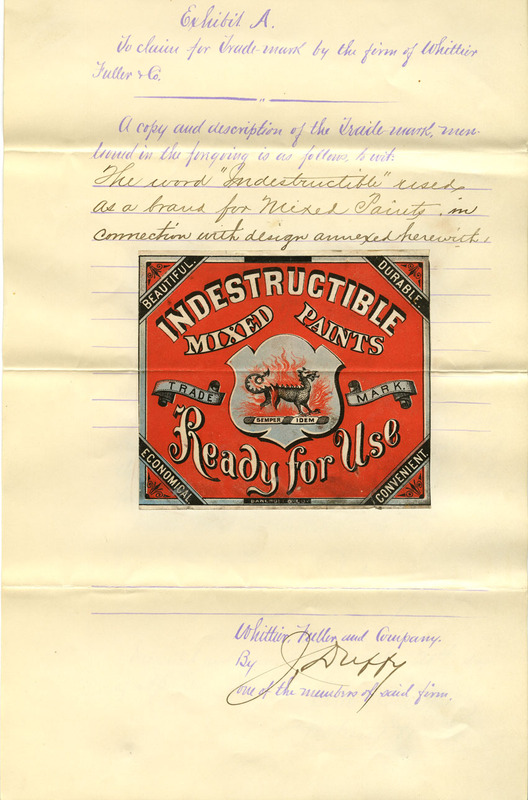 Exhibit A.
To claim for Trade-mark by the firm of Whittier
Fuller & Co.
A copy and description of the Trade-mark, men-
tioned in the foregoing is as follows, to wit:
The word "Indestructible" used,
as a brand for Mixed Paints, in
connection with design annexed herewith
BEAUTIFUL.
DURABLE.
INDESTRUCTIBLE
MIXED PAINTS
TRADE MARK.
SEMPER IDEM
Ready for Use
ECONOMICAL
CONVENIENT.
Whittier, Fuller and Company.
By J. Duffy
one of the members of said firm.